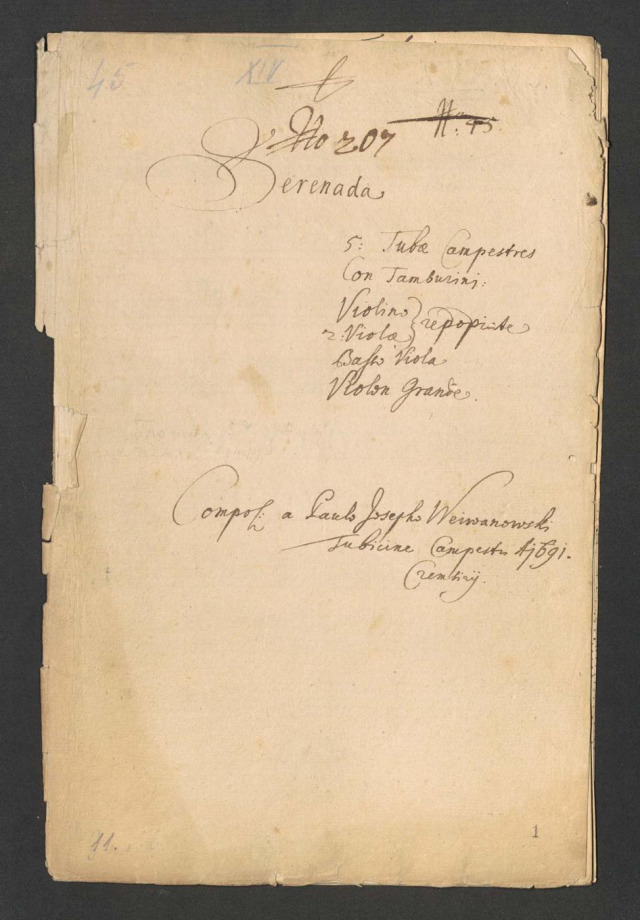 45 XIV
No 207 N: 45.
Serenada
5: Tubæ Campestres
Con Tamburini:
Violino
2: Violæ
Basso Viola
Violon Grande.
Compos: a Paulo Josepho Weiwanowski
Tubicine Campestri A 1691.
Crembsirij.
11. 1